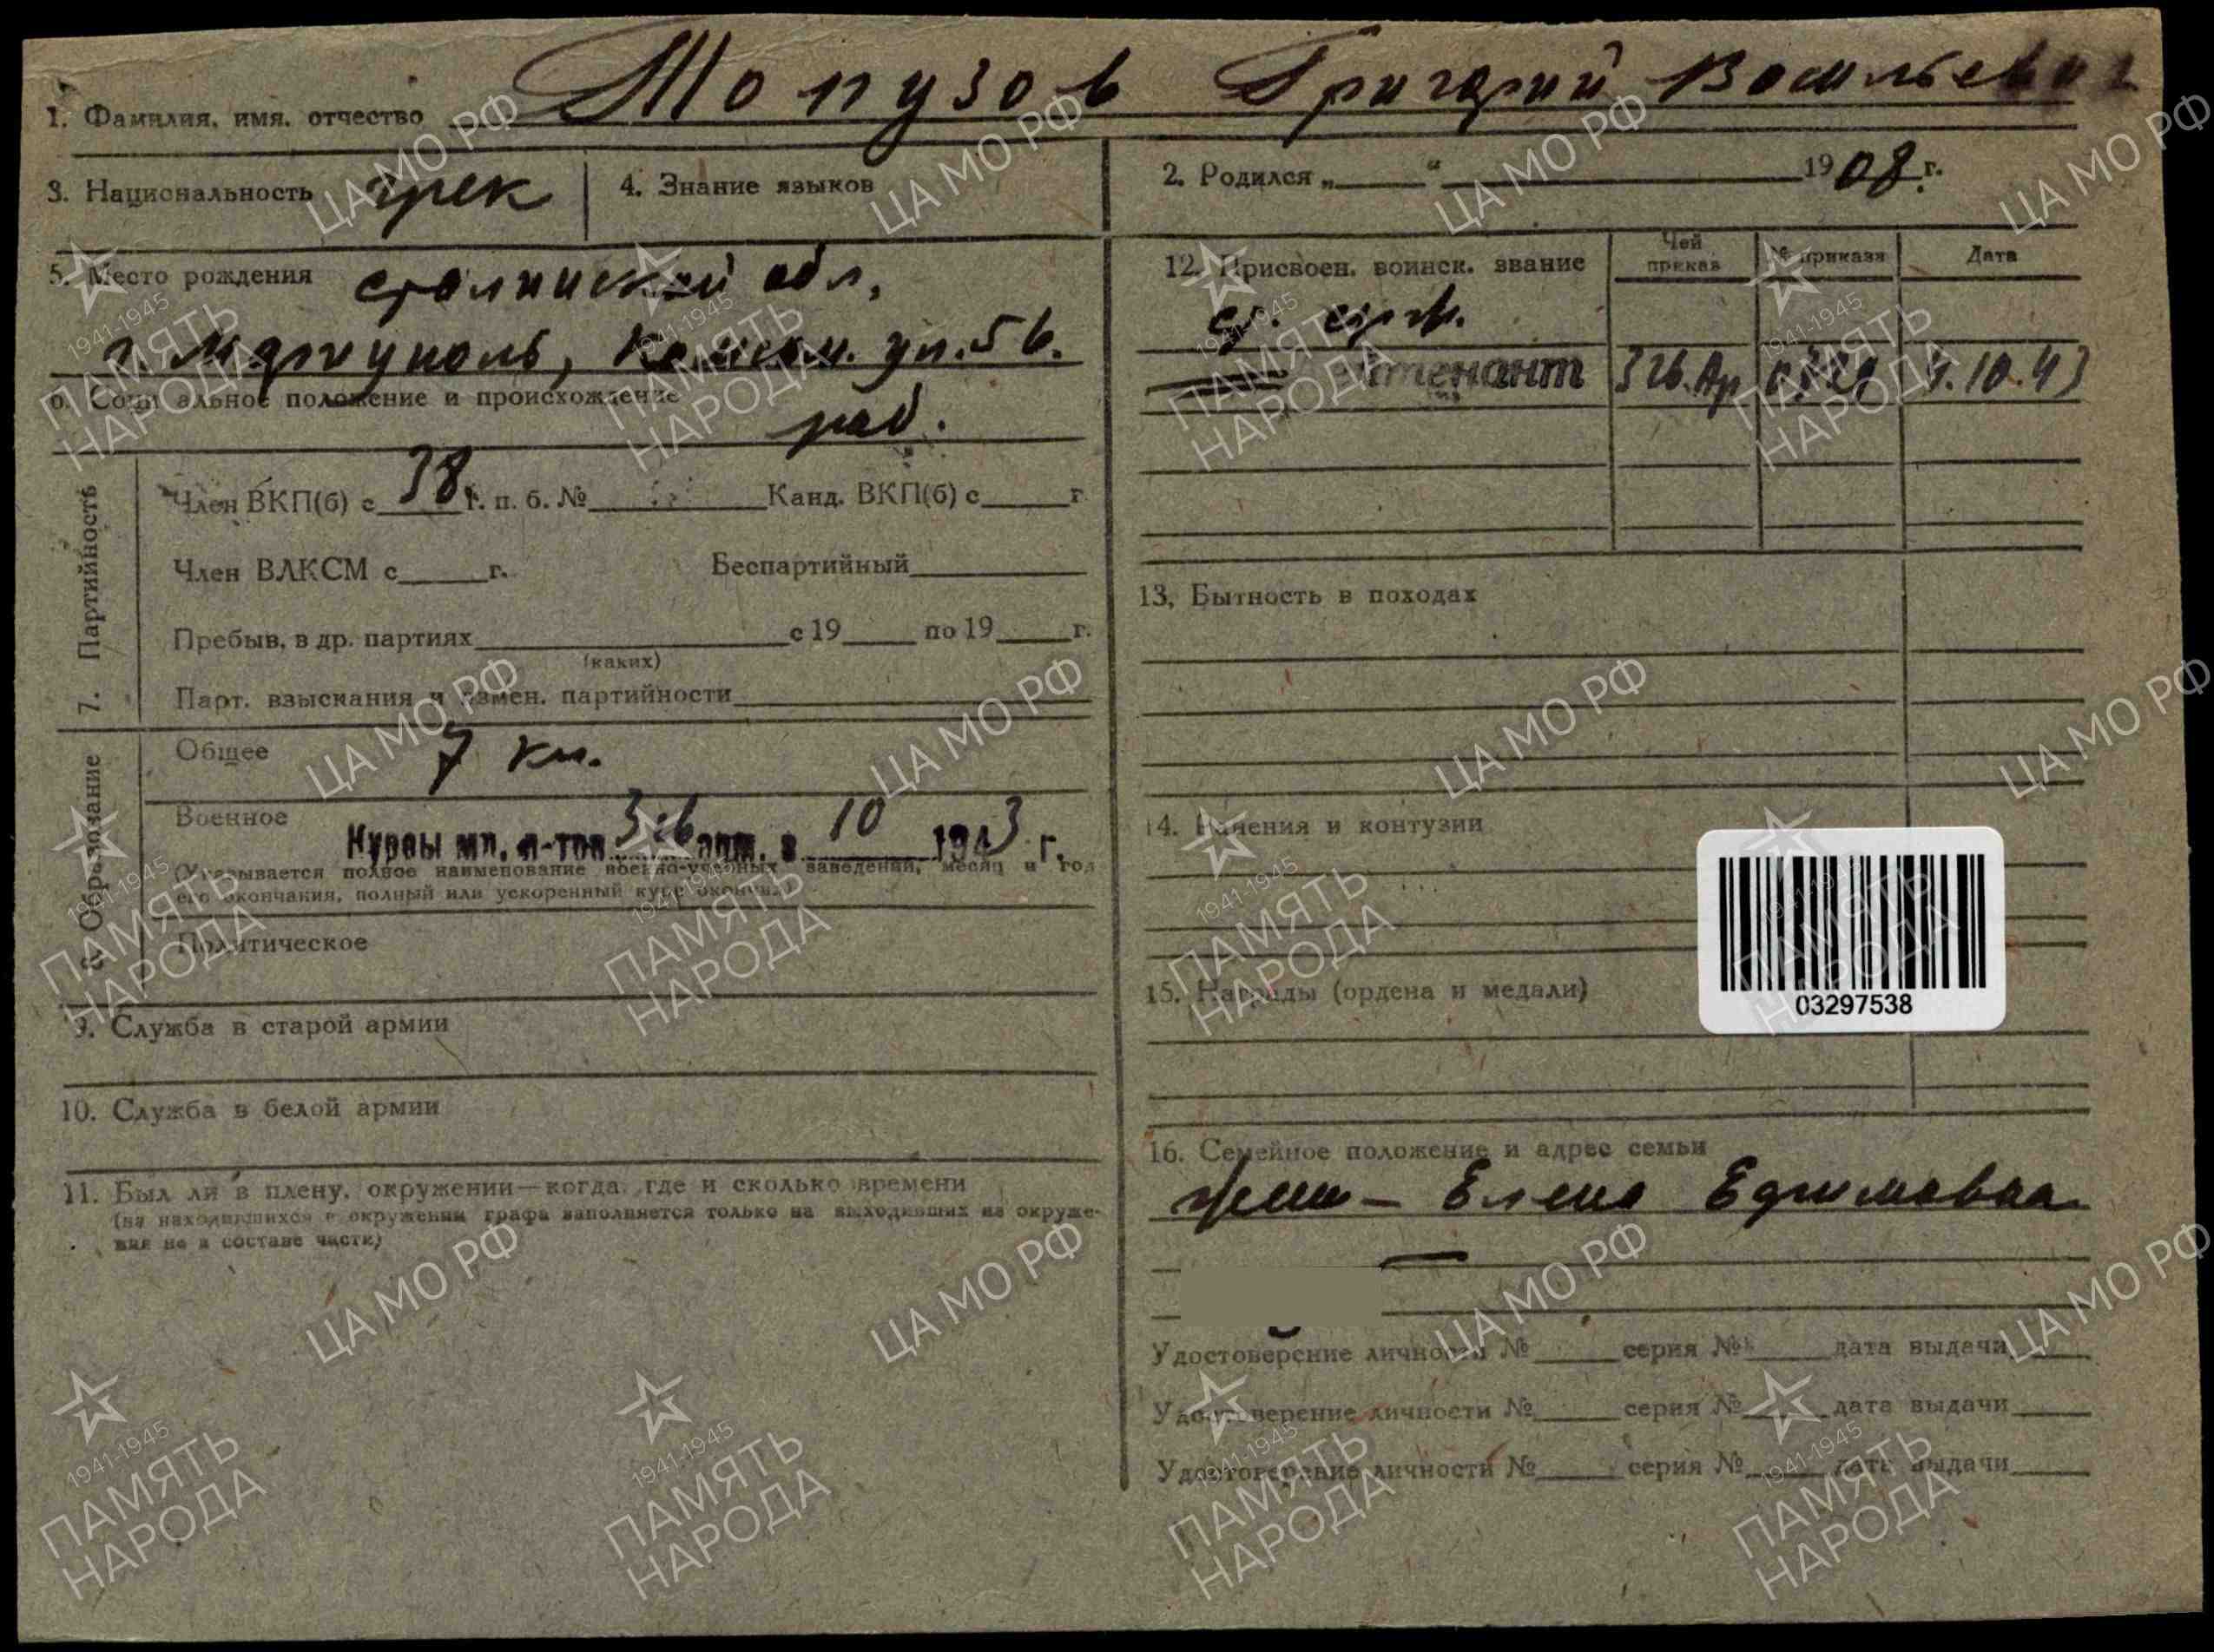 1. Фамилия, имя, отчество Топузов Григорий Васильевич
3. Национальность грек
4. Знание языков
2. Родился „ “ 1908 г.
5. Место рождения Сталинской обл,
г. Мариуполь, ул. 56.
6. Социальное положение и происхождение
раб.
7. Партийность
Член ВКП(б) с 38 г. п. б. № Канд. ВКП(б) с г.
Член ВЛКСМ с г. Беспартийный
Пребыв. в др. партиях с 19 по 19 г.
(каких)
Парт. взыскания и измен. партийности
8. Образование
Общее 7 кл.
Военное
Курсы мл. л-тов арм. в 10 1943 г.
(Указывается полное наименование военно-учебных заведений, месяц и год
его окончания, полный или ускоренный курс окончил)
Политическое
9. Служба в старой армии
10. Служба в белой армии
11. Был ли в плену, окружении—когда, где и сколько времени
(на находившихся в окружении графа заполняется только на выходивших из окруже-
ния не в составе части)
12. Присвоен. воинск. звание Чей приказ № приказа Дата
ст. серж.
лейтенант 326.Ар 4.10.43
13, Бытность в походах
14. Ранения и контузии
03297538
15. Награды (ордена и медали)
16. Семейное положение и адрес семьи
жена — Елена Ефимовна
—
Удостоверение личности № серия № дата выдачи
Удостоверение личности № серия № дата выдачи
Удостоверение личности № серия № дата выдачи
ЦА МО РФ
1941-1945
ПАМЯТЬ
НАРОДА